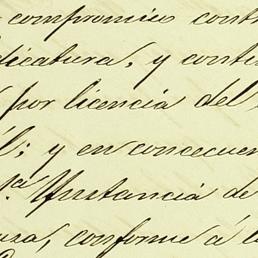 compromiso cont
dicatura, y conti
por licencia del
l; y en concecuen
1ª Ynstancia de
ura, conforme á l